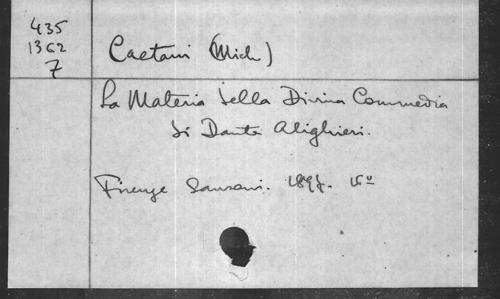 435
1362
7
Caetani (Mich)
La Materia della Divina Commedia
di Dante Alighieri.
Firenze Sansoni. 16º